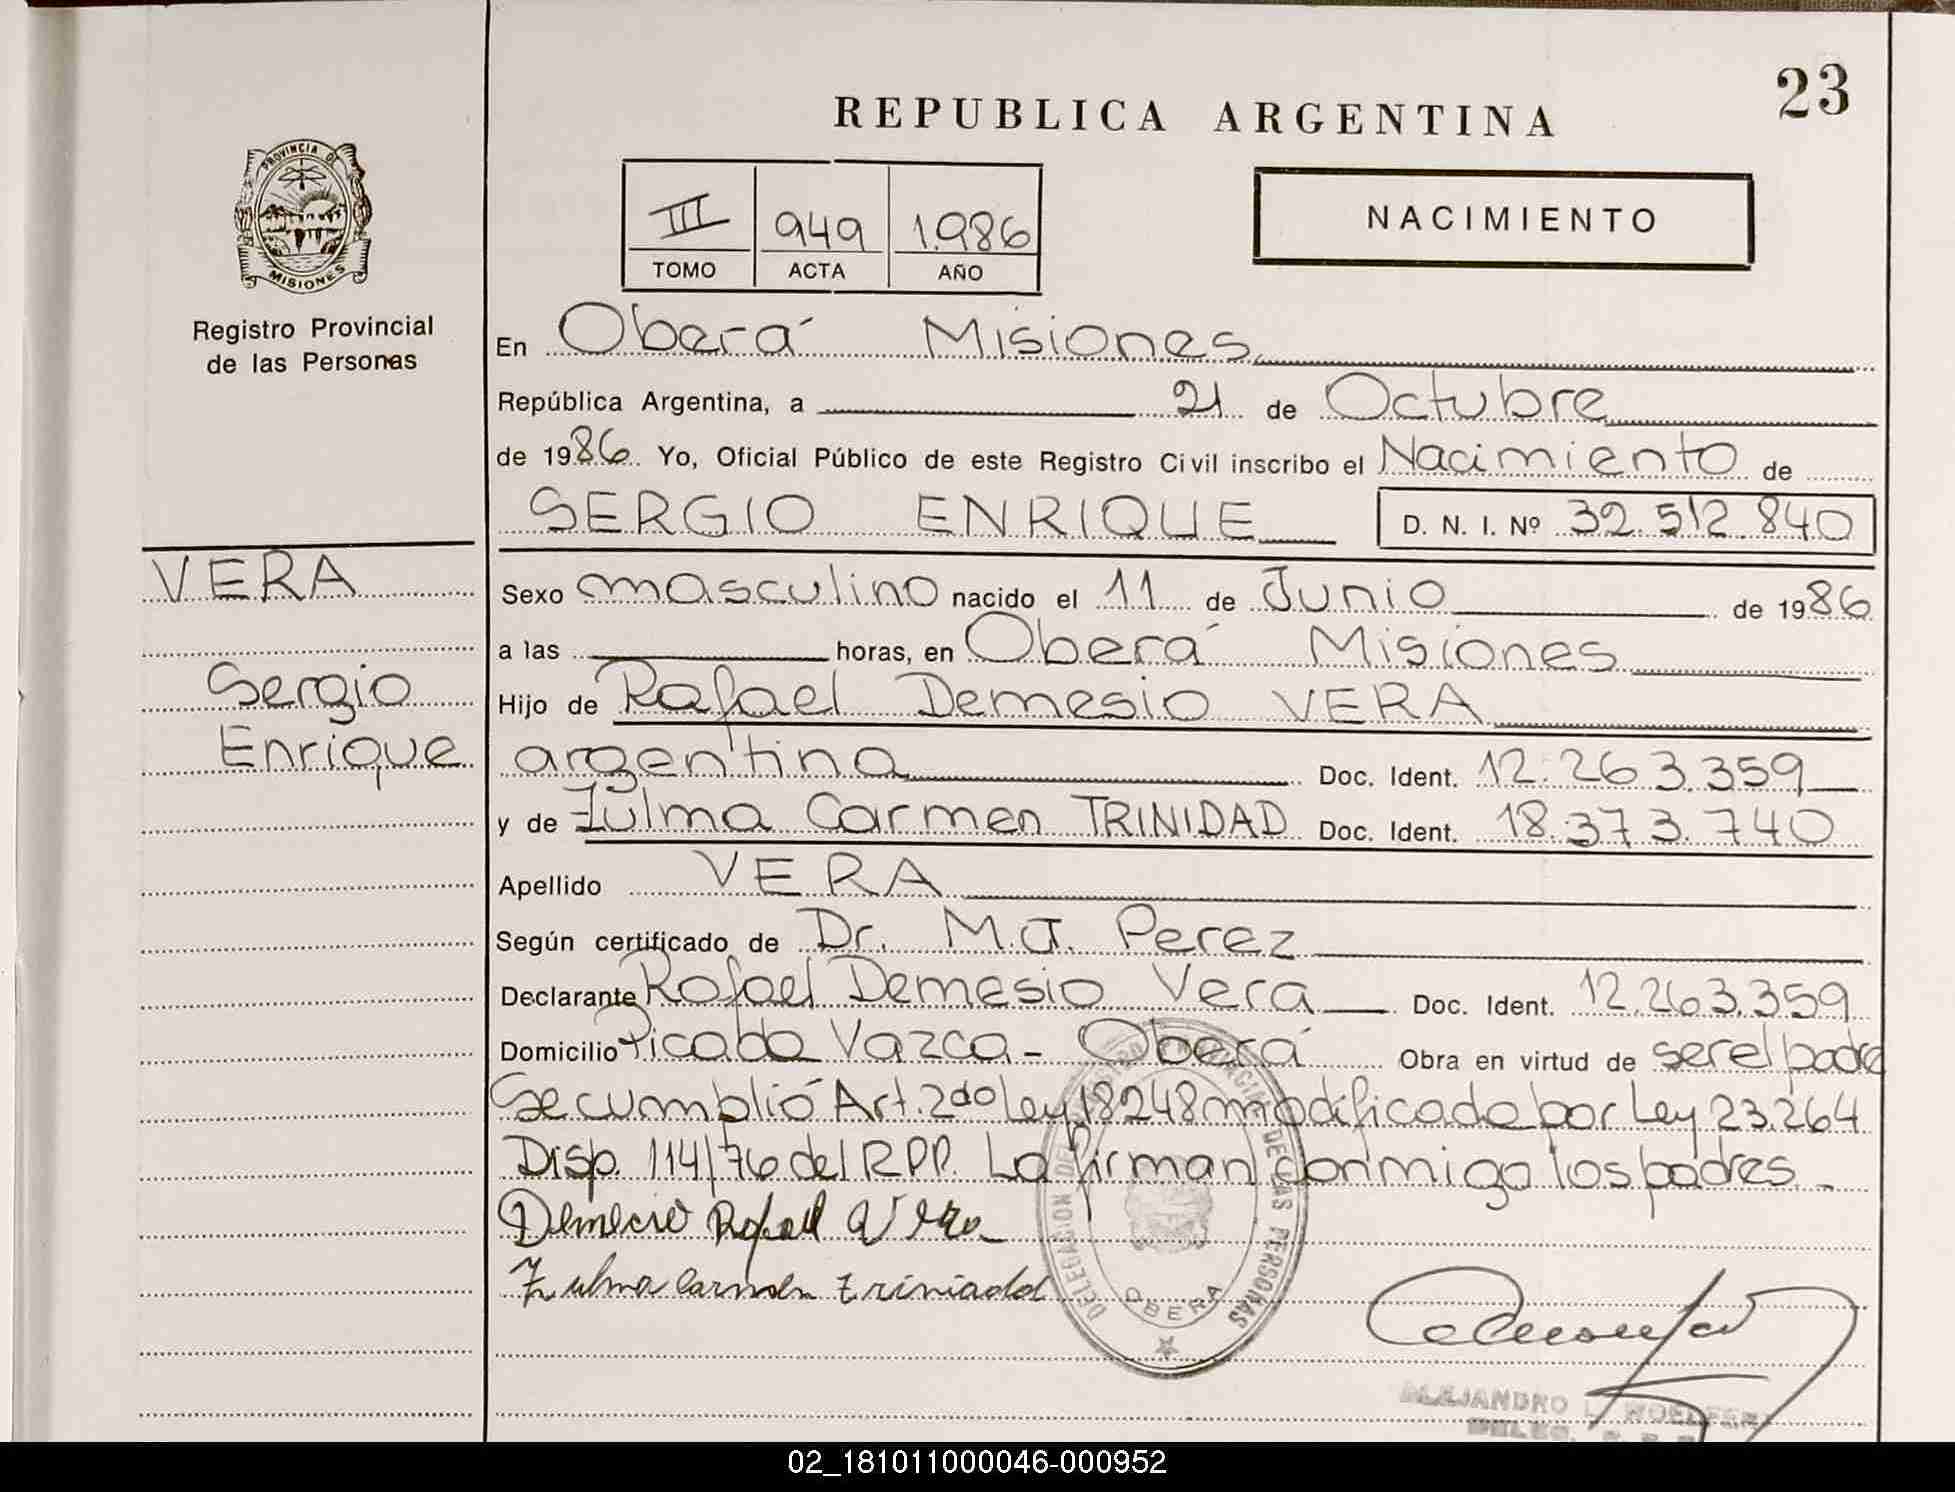 23
REPUBLICA ARGENTINA
PROVINCIA DE
MISIONES
Registro Provincial
de las Personas
III 949 1.986
TOMO ACTA AÑO
NACIMIENTO
En Oberá Misiones
República Argentina, a 21 de Octubre
de 1986 Yo, Oficial Público de este Registro Civil inscribo el Nacimiento de
SERGIO ENRIQUE D. N. I. Nº 32.512.840
VERA
Sergio
Enrique
Sexo masculino nacido el 11 de Junio de 1986
a las horas, en Oberá Misiones
Hijo de Rafael Demesio VERA
argentina Doc. Ident. 12.263.359
y de Zulma Carmen TRINIDAD Doc. Ident. 18.373.740
Apellido VERA
Según certificado de Dr. M.J. Perez
Declarante Rafael Demesio Vera Doc. Ident. 12.263.359
Domicilio Picada Vazca - Oberá Obra en virtud de ser el padre
Se cumplió Art. 2do Ley 18248 modificado por Ley 23.264
Disp. 114/76 del R.P.P. La firman conmigo los padres. -
Demecio Rafael Vera
Zulma Carmen Triniadd
DELEGACION DEL REGISTRO PROVINCIAL DE LAS PERSONAS
OBERA
ALEJANDRO L.
02_181011000046-000952